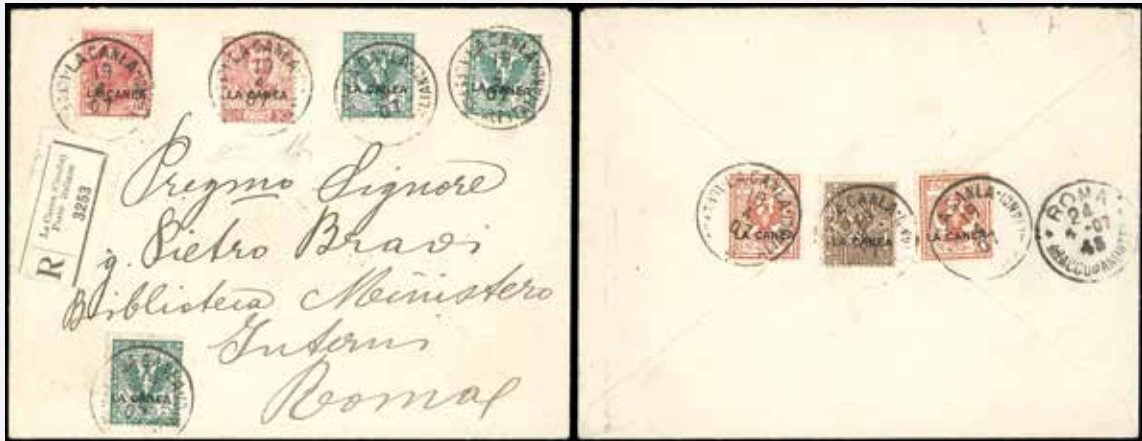 LA CANEA
19
4
07
LA CANEA
LA CANEA
19
4
07
LA CANEA
LA CANEA
07
LA CANEA
LA CANEA
07
LA CANEA
R
La Canea (Candia)
Poste Italiane
3253
Pregmo Signore
g. Pietro Bravi
Biblioteca Ministero
Interni
Roma
LA CANEA
LA CANEA
07
LA CANEA
19
4
07
LA CANEA
LA CANEA
LA CANEA
LA CANEA
19
LA CANEA
ROMA
24
4-07
4S
(RACCOMANDATE)